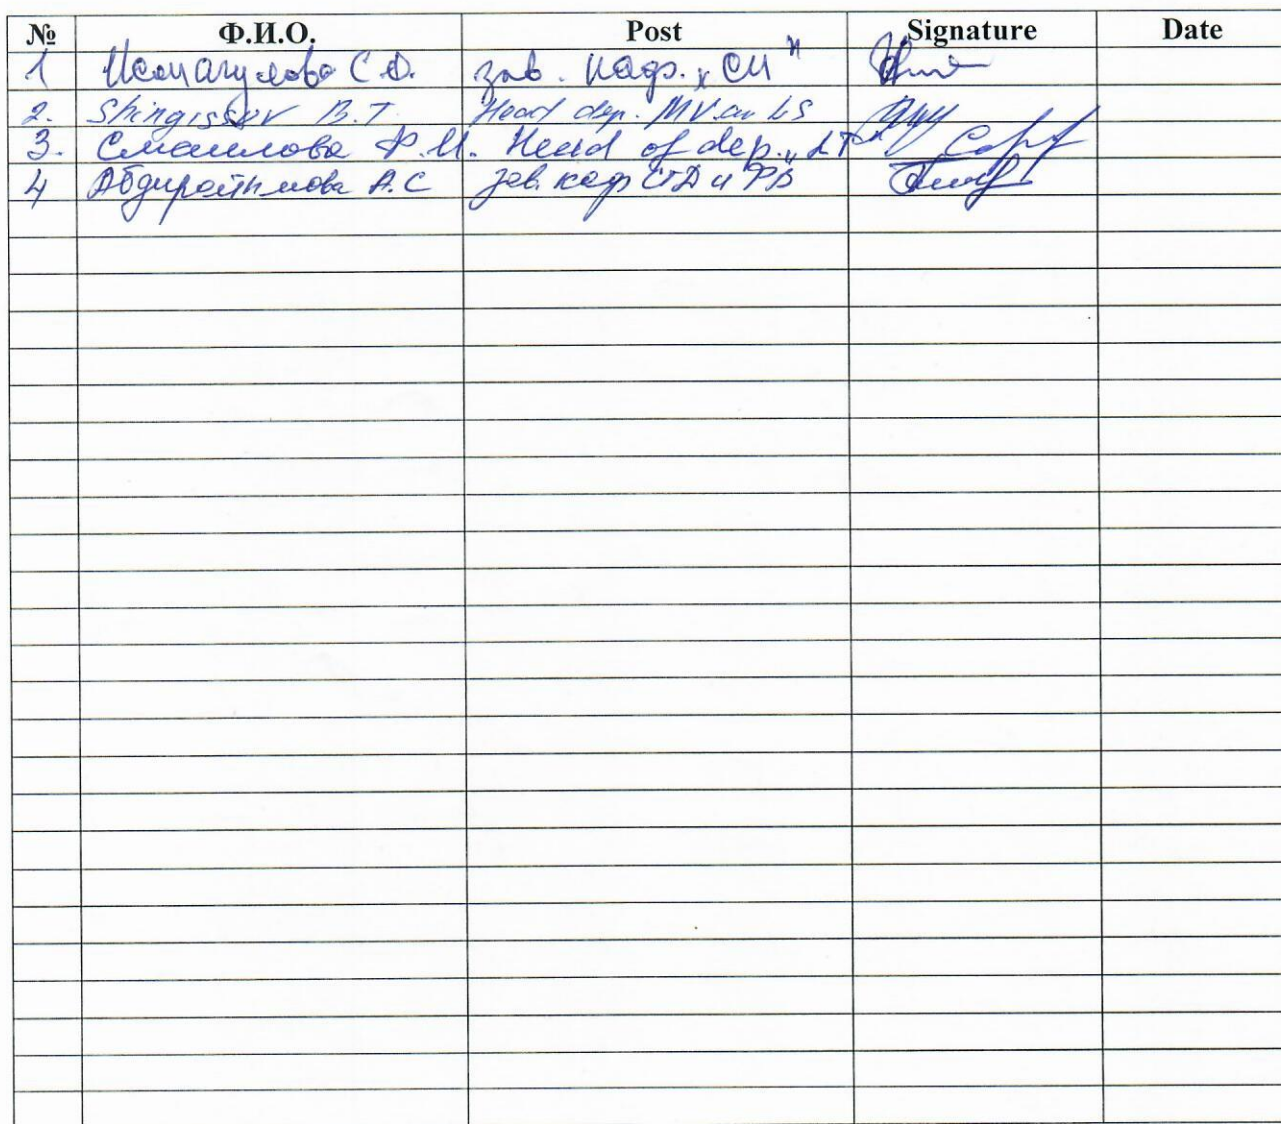 № Ф.И.О. Post Signature Date
1 С.О. зав. кафр. „СИ"
2. Shingissov B.T. Head dep. MV an LS
3. Смаилова Ф.И. Head of dep. „LT"
4 Абдираймова А.С зав. каф СТД и РВ